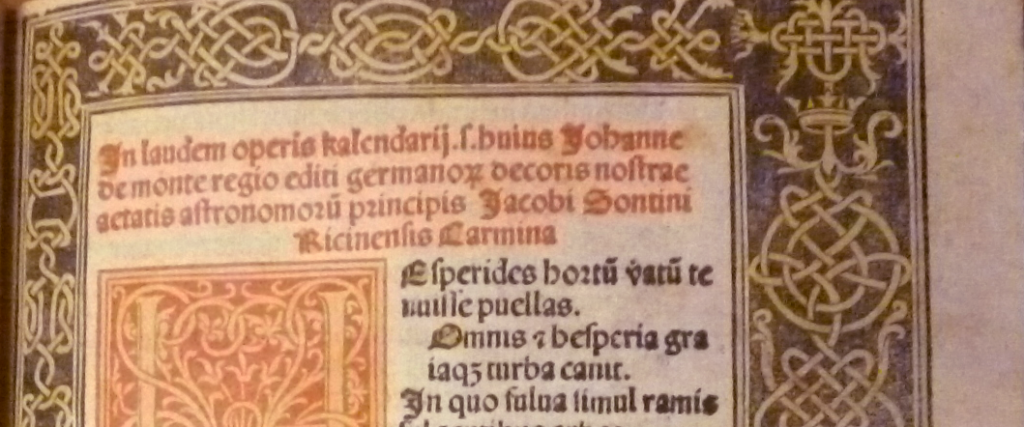 In laudem operis kalendarij .ſ. huius Johanne
de monte regio editi germanoꝝ decoris noſtrae
aetatis aſtronomorū principis Jacobi Sontini
Ricinenſis Carmina
H
Eſperides hortū vatū te
nuiſſe puellas.
Omnis ⁊ heſperia gra
iaqꝫ turba canit.
In quo fulua ſimul ramis